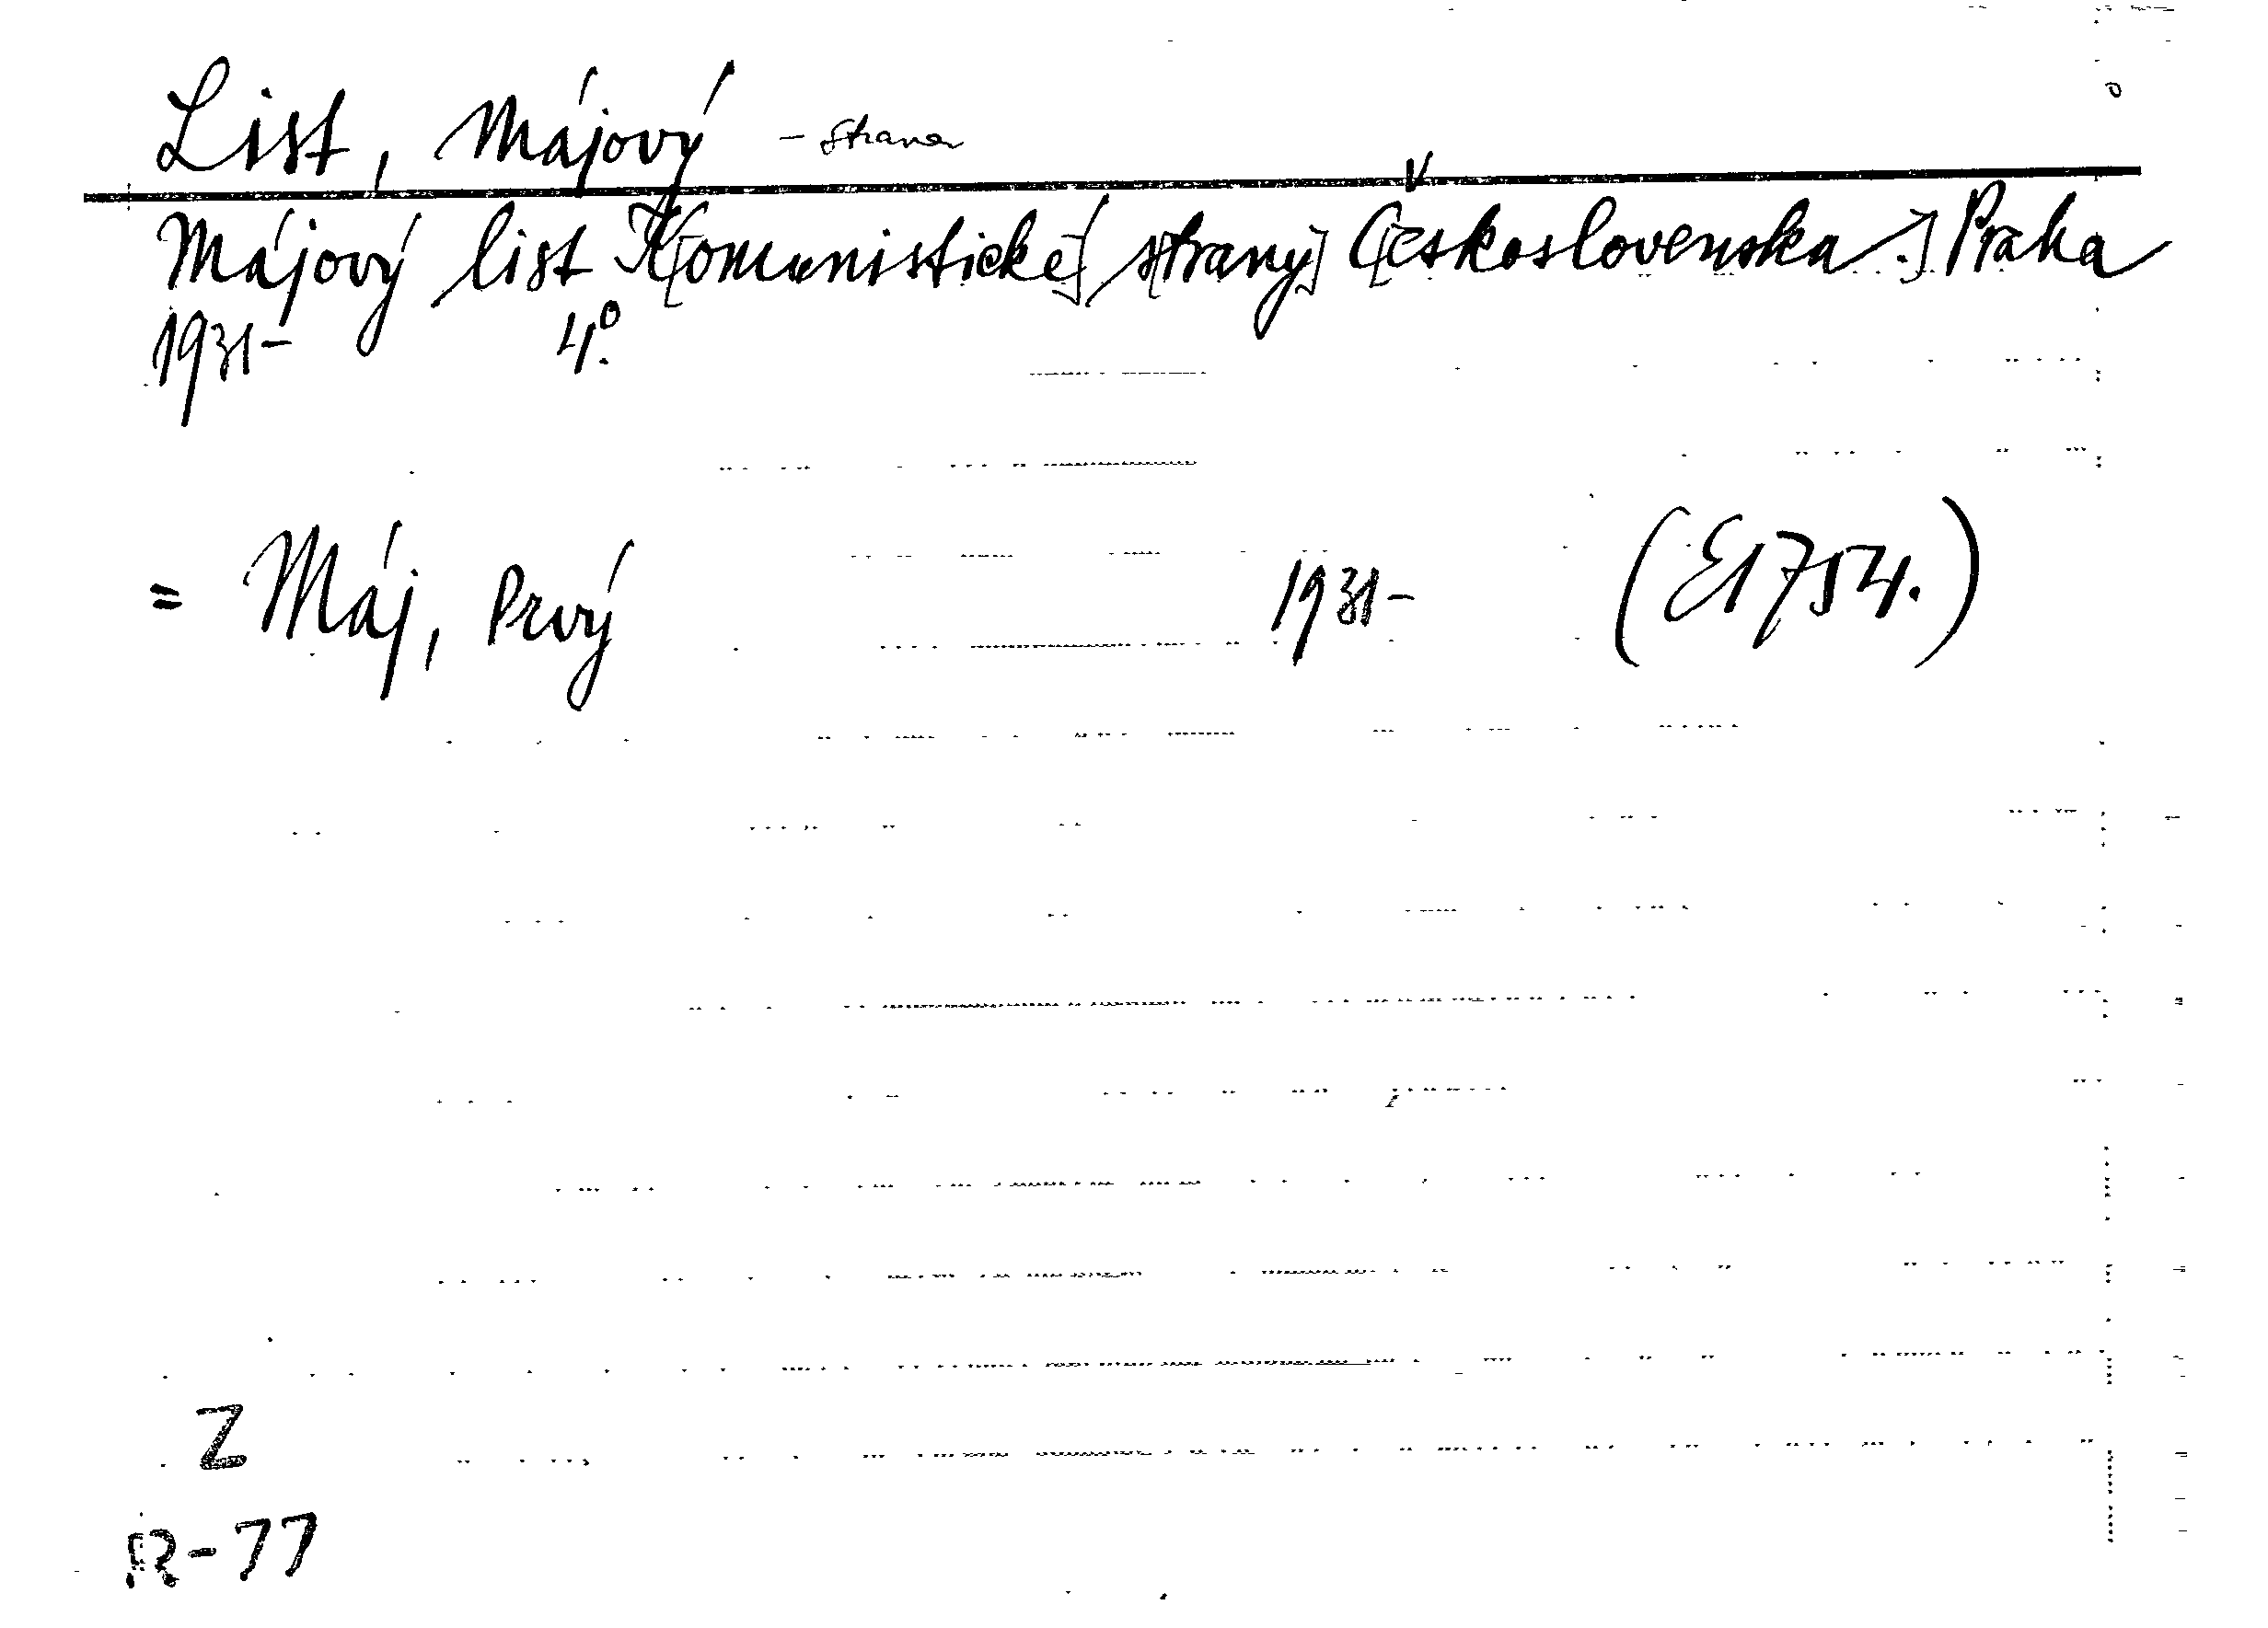 List, Májový - strana
Májový list K[omunistické] s[trany] Č[eskoslovenska.] Praha
1931- 4°.
= Máj, Prvý 1931- (E1754.)
Z
R-77